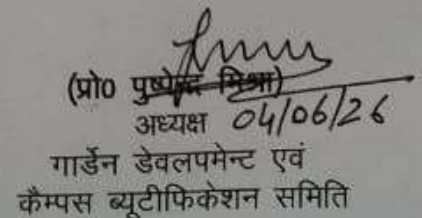 (प्रो० पुष्पेन्द्र मिश्रा)
अध्यक्ष 04/06/26
गार्डेन डेवलपमेन्ट एवं
कैम्पस ब्यूटीफिकेशन समिति